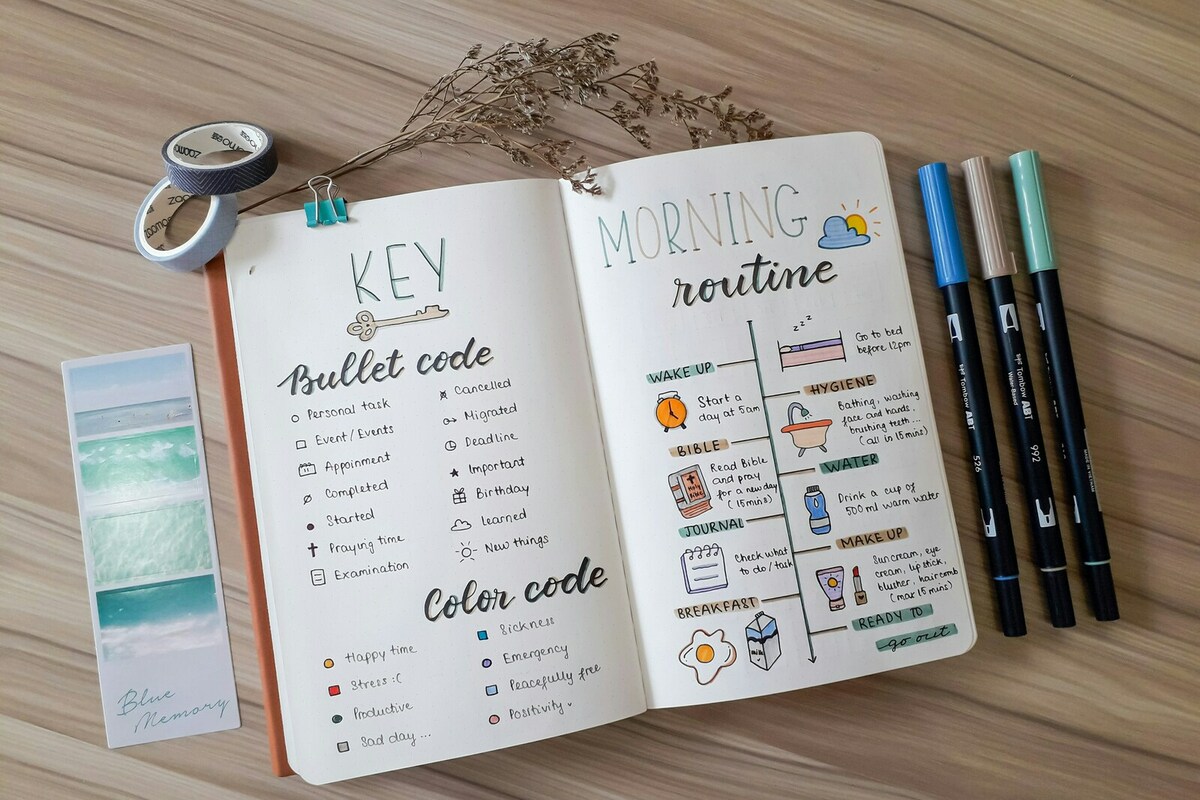 KEY
Bullet code
Personal task
Event/Events
Appoinment
Completed
Started
Praying time
Examination
Cancelled
Migrated
Deadline
Important
Birthday
Learned
New things
Color code
Happy time
Stress :(
Productive
Sad day ...
Sickness
Emergency
Peacefully free
Positivity
MORNING
routine
z z z
Go to bed
before 12pm
WAKE UP
Start a
day at 5am
HYGIENE
Bathing, washing
face and hands.
brushing teeth...
(all in 15mins)
BIBLE
Holy
Bible
Read Bible
and pray
for a new day
(15mins)
WATER
Drink a cup of
500 ml warm water
JOURNAL
Check what
to do / task
MAKE UP
Suncream, eye
cream, lip stick,
blusher, haircomb
(max 15 mins)
BREAKFAST
Milk
READY TO
go out
Blue
Memory
ZOOMO
Tombow ABT
526
Tombow ABT
Water Based
992